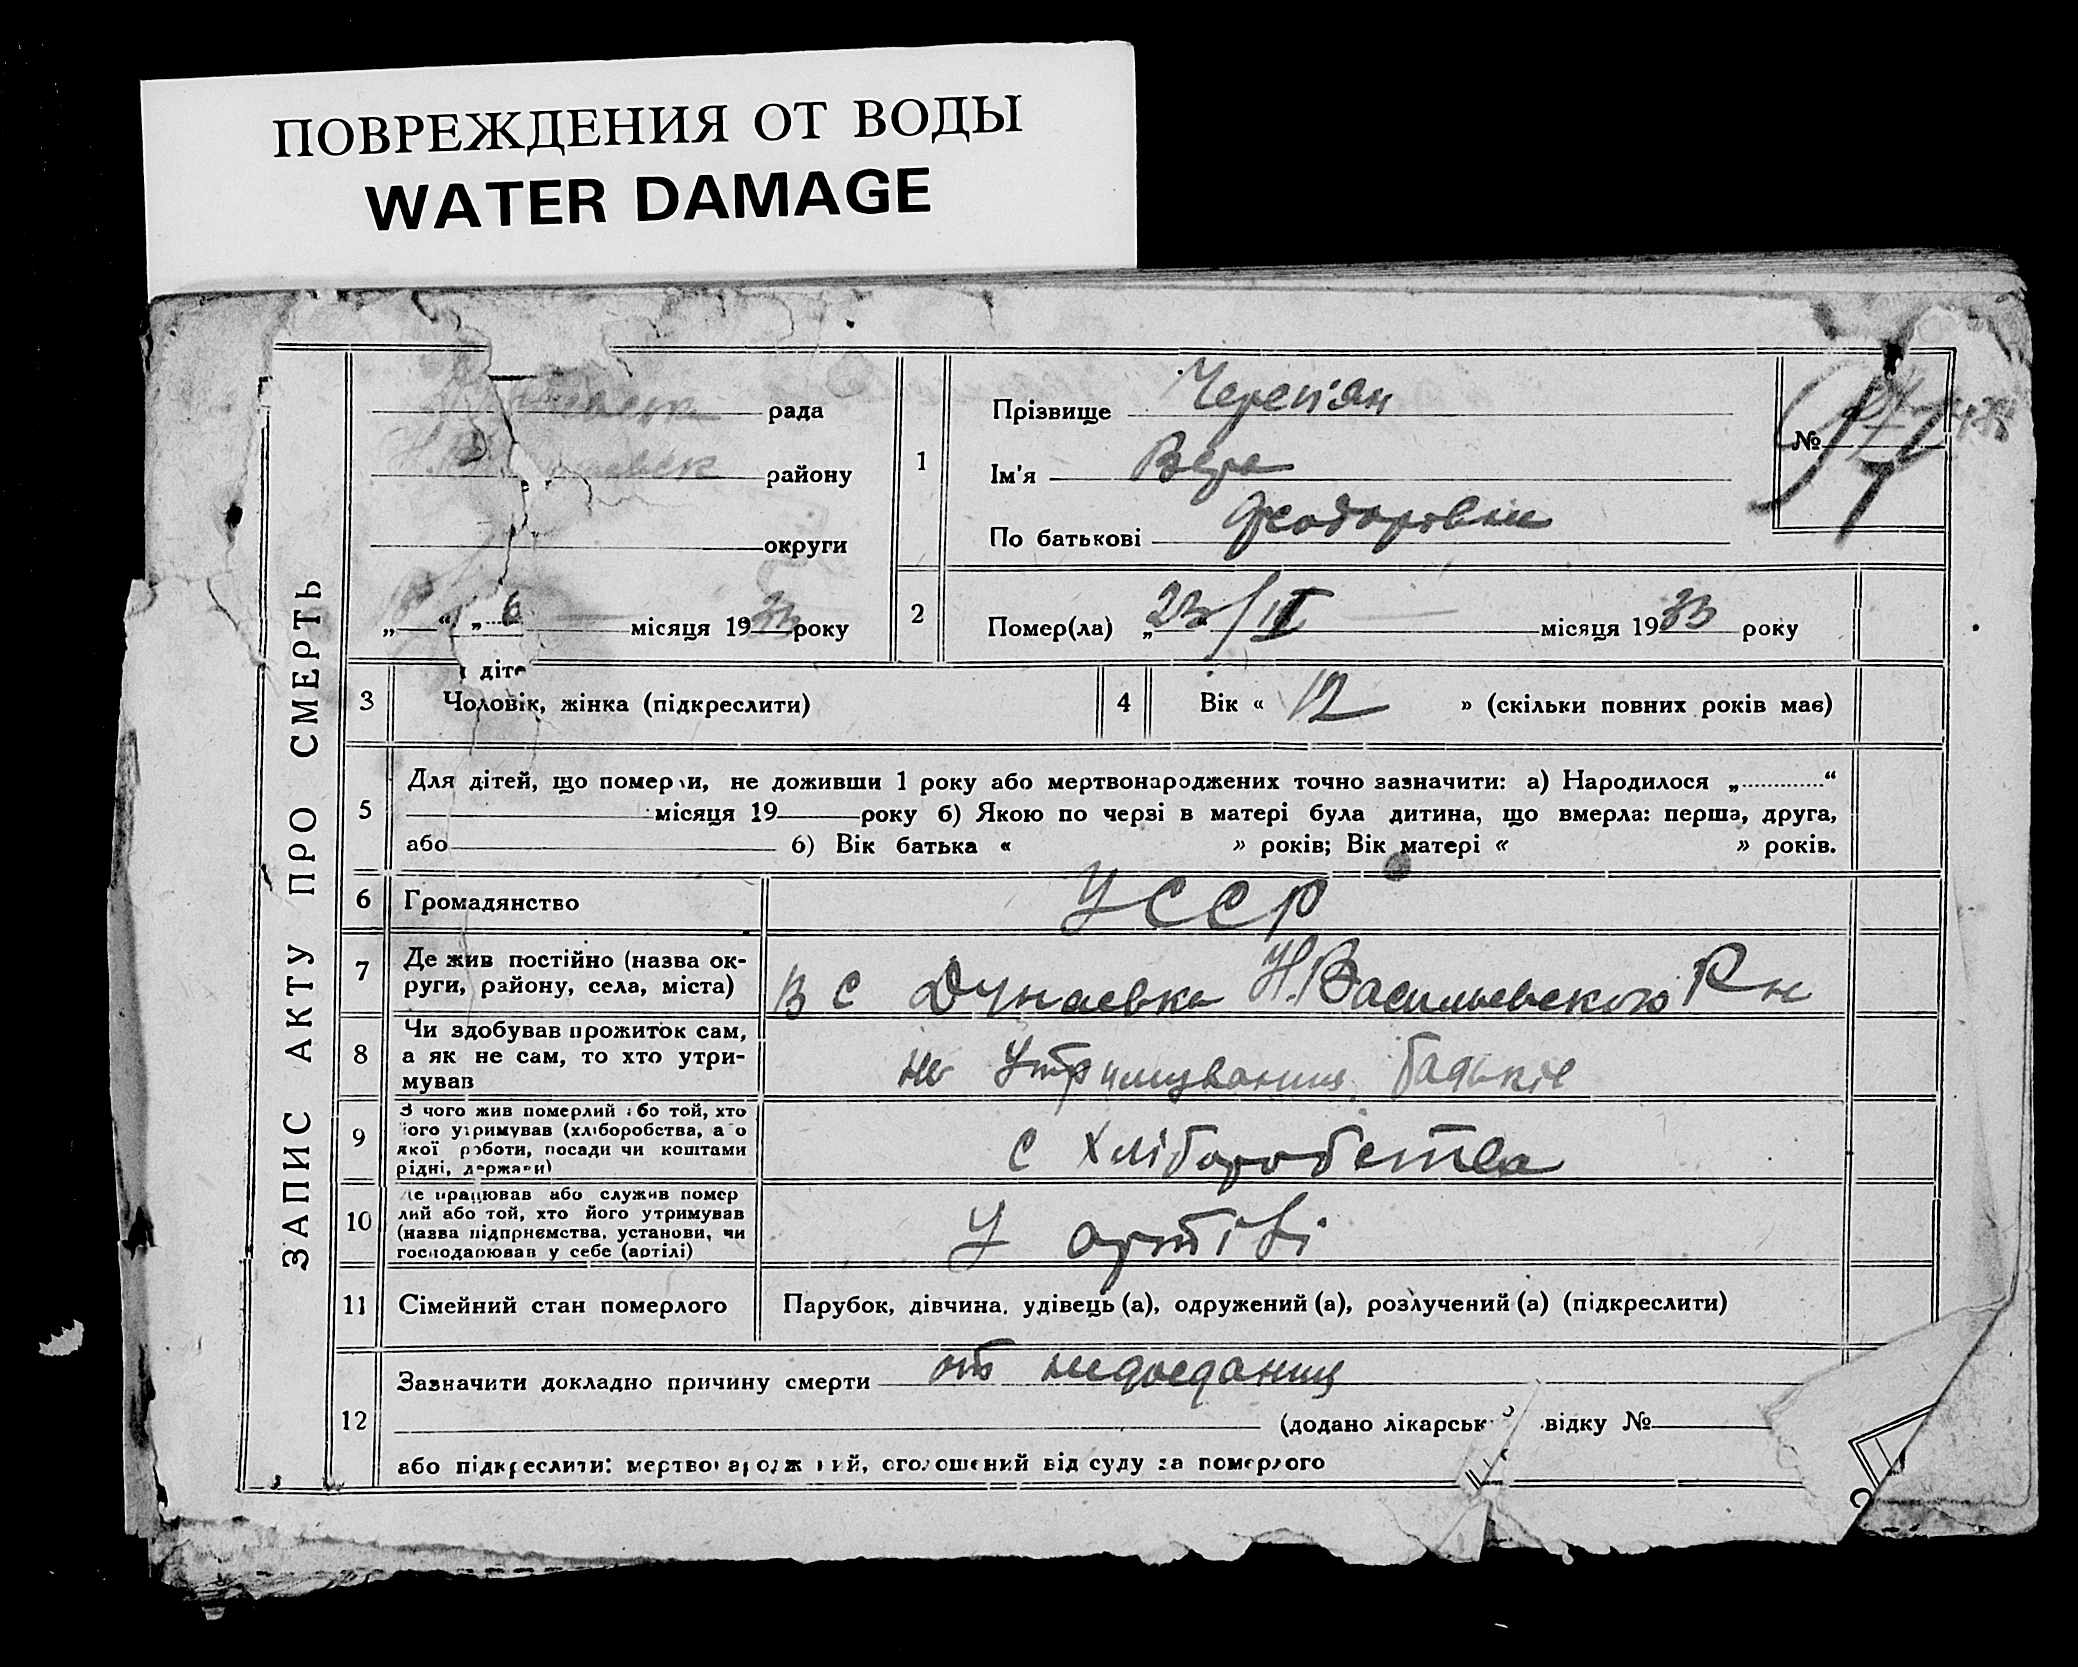 ПОВРЕЖДЕНИЯ ОТ ВОДЫ
WATER DAMAGE
ЗАПИС АКТУ ПРО СМЕРТЬ
рада
району
округи
„ “ „ 6 місяця 1933 року
1
Прізвище Череп'ян
Ім'я Вера
По батькові Феодоровни
№
2
Помер(ла) „23/II місяця 1933 року
3
діте
Чоловік, жінка (підкреслити)
4
Вік « 12 » (скільки повних років має)
5
Для дітей, що померли, не доживши 1 року або мертвонароджених точно зазначити: а) Народилося „ “
місяця 19 року б) Якою по черзі в матері була дитина, що вмерла: перша, друга,
або б) Вік батька « » років; Вік матері « » років.
6
Громадянство
УССР
7
Де жив постійно (назва ок-
руги, району, села, міста)
в с Дунаевка Н.Васильевского Рн
8
Чи здобував прожиток сам,
а як не сам, то хто утри-
мував
на Утримувании батьків
9
З чого жив померлий або той, хто
його утримував (хліборобства, а о
якої роботи, посади чи коштами
рідні, держави)
с Хліборобства
10
Де працював або служив помер
лий або той, хто його утримував
(назва підприємства, установи, чи
господарював у себе (артілі)
У артілі
11
Сімейний стан померлого
Парубок, дівчина, удівець (а), одружений (а), розлучений (а) (підкреслити)
12
Зазначити докладно причину смерти от недоедания
(додано лікарськ відку №
або підкреслити: мертвонароджений, оголошений від суду за померлого